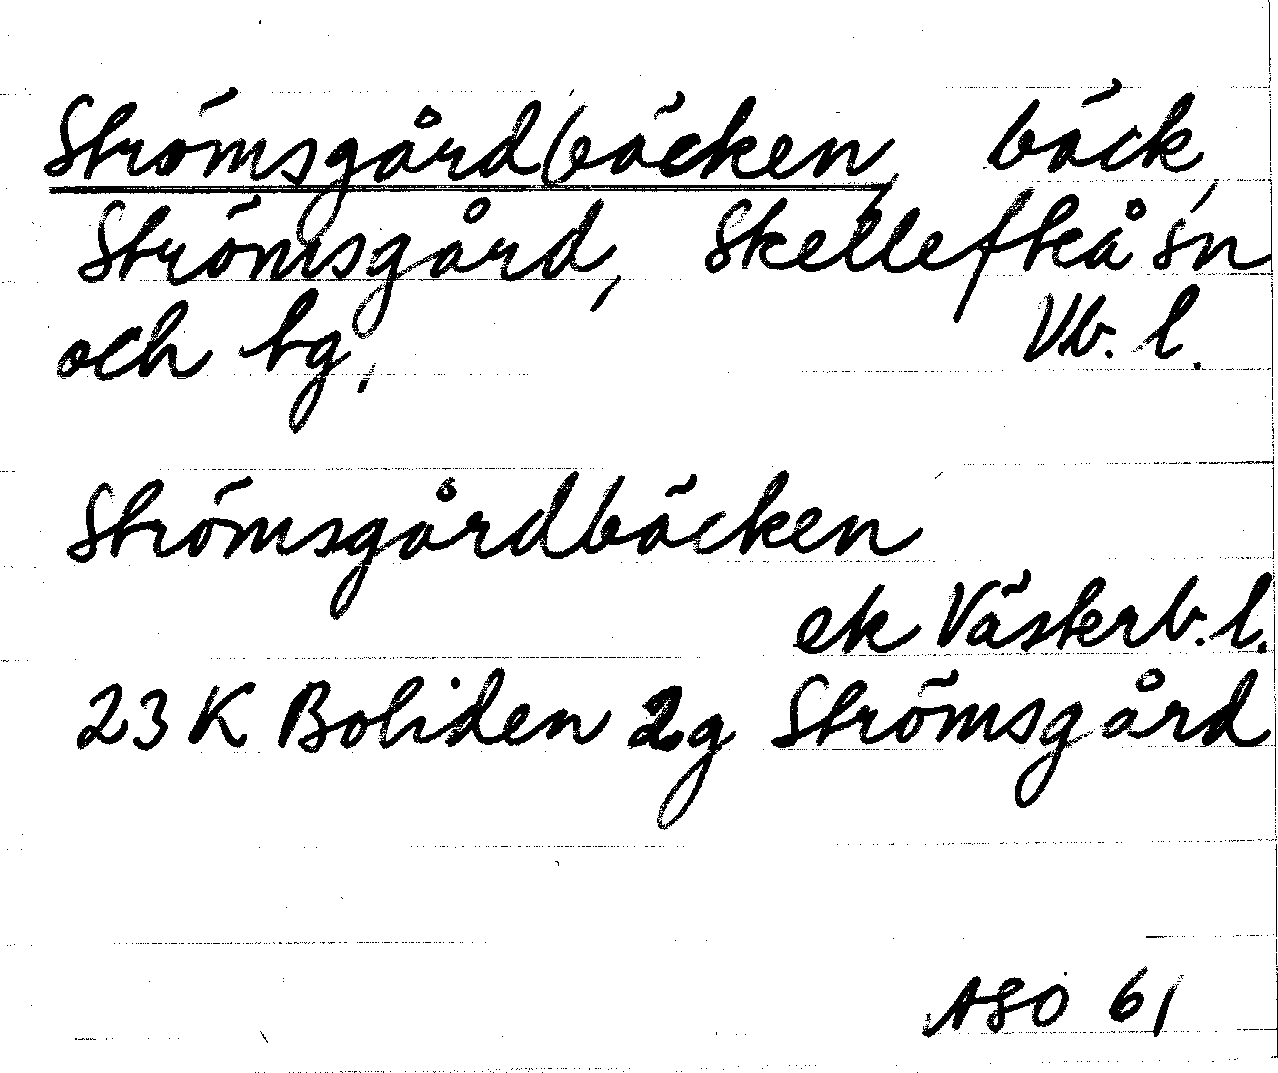 Strömsgårdbäcken, bäck,
Strömsgård, Skellefteå sn
och tg, Vb. l.
Strömsgårdbäcken
ek Västerb. l.
23 K Boliden 2g Strömsgård
ASO 61